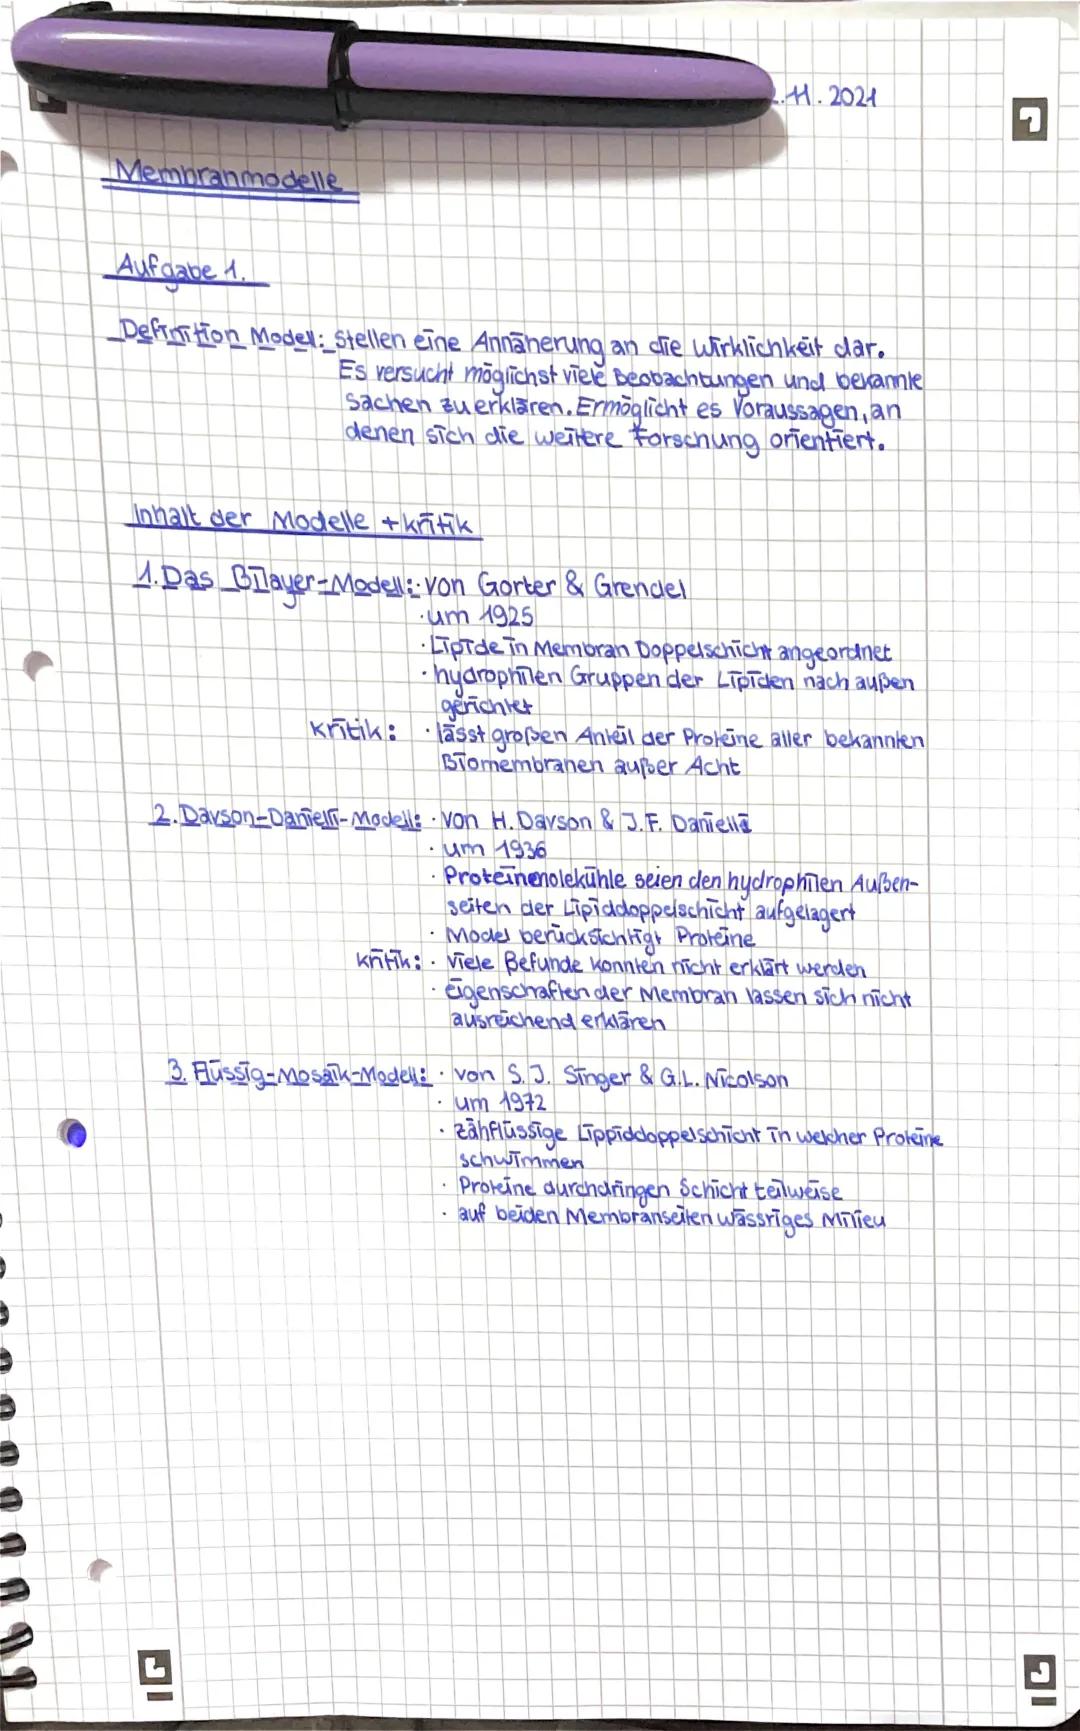 .11.2021
Membranmodelle
Aufgabe 1.
Definition Modell: Stellen eine Annäherung an die Wirklichkeit dar.
Es versucht möglichst viele Beobachtungen und bekannte
Sachen zu erklären. Ermöglicht es Voraussagen, an
denen sich die weitere Forschung orientiert.
Inhalt der Modelle + Kritik
1. Das Bilayer-Modell: · von Gorter & Grendel
· um 1925
· Lipide in Membran Doppelschicht angeordnet
· hydrophilen Gruppen der Lipiden nach außen
gerichtet
Kritik: · lässt großen Anteil der Proteine aller bekannten
Biomembranen außer Acht
2. Davson-Danielli-Modell: · von H. Davson & J.F. Danielli
· um 1936
· Proteinmolekühle seien den hydrophilen Außen-
seiten der Lipiddoppelschicht aufgelagert
· Model berücksichtigt Proteine
Kritik: · Viele Befunde konnten nicht erklärt werden
· Eigenschaften der Membran lassen sich nicht
ausreichend erklären
3. Flüssig-Mosaik-Modell: · von S.J. Singer & G.L. Nicolson
· um 1972
· zähflüssige Lippiddoppelschicht in welcher Proteine
schwimmen
· Proteine durchdringen Schicht teilweise
· auf beiden Membranseiten wässriges Milieu